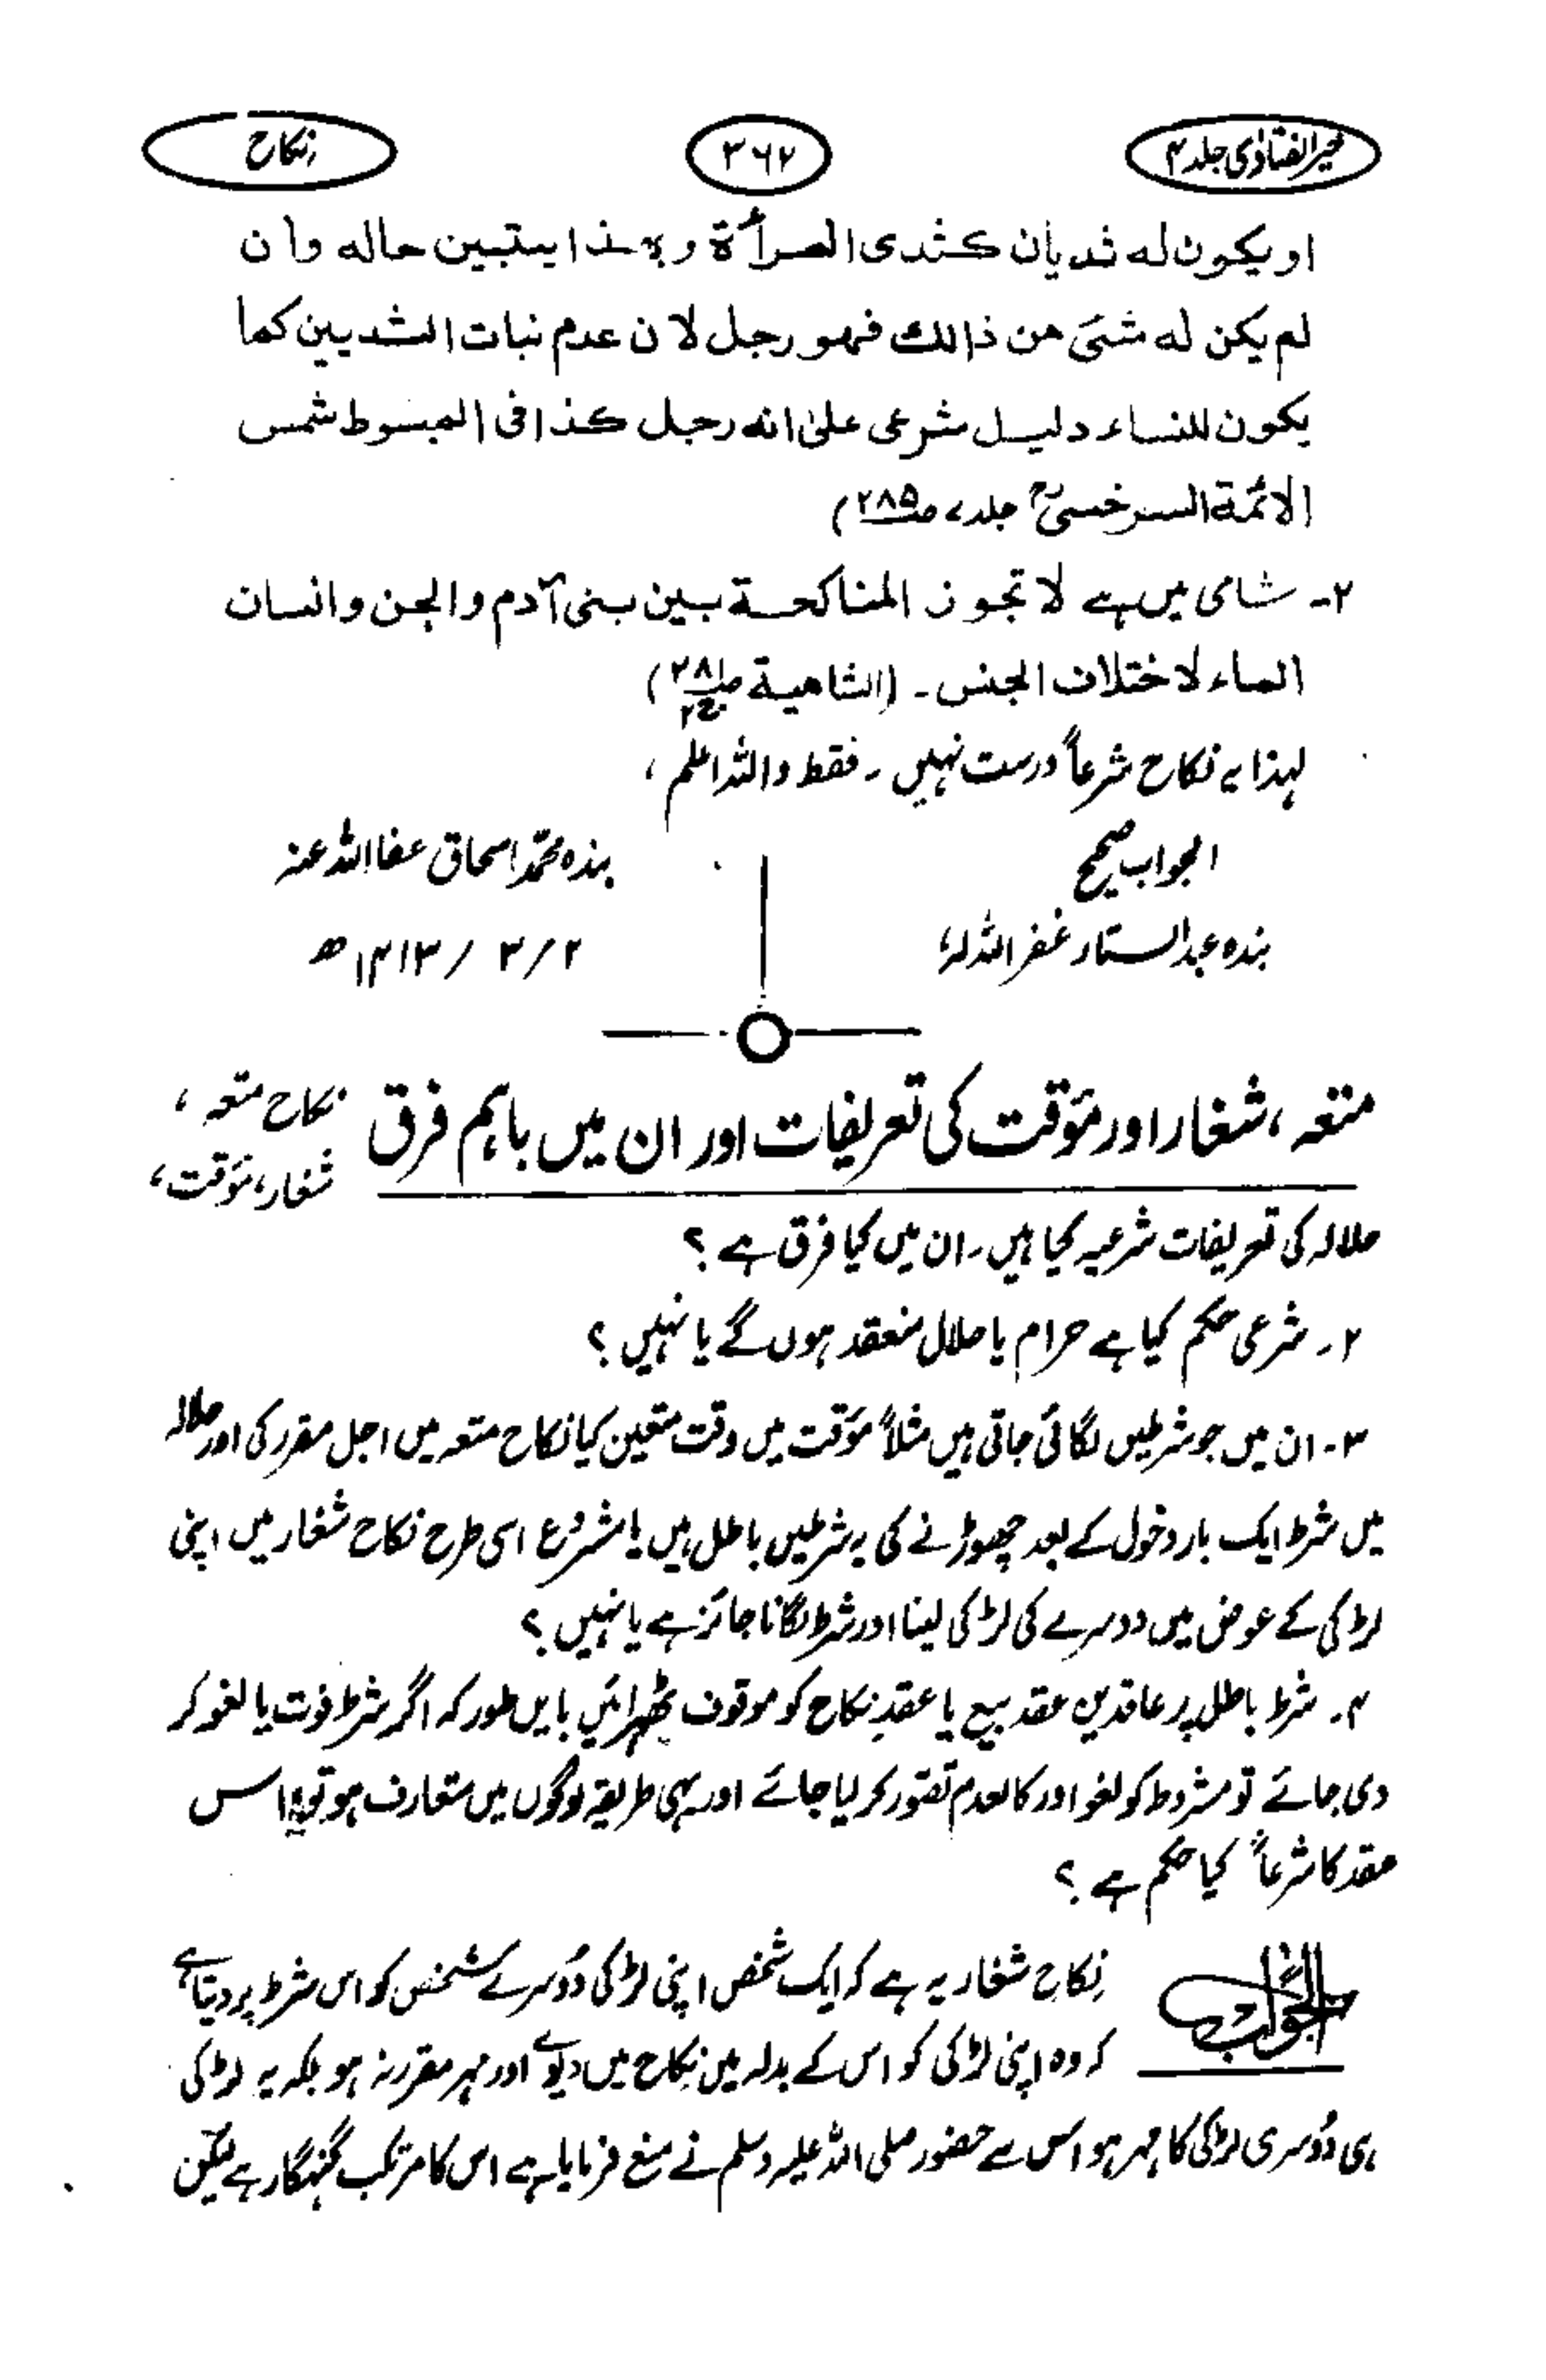 خیر الفتاویٰ جلد ۴
۳۶۷
نکاح
او یکون له ثدیان کثدی المرأة و بهذا یتبین حاله وان
لم یکن له شئ من ذالك فهو رجل لان عدم نبات الثدیین كما
یکون للنساء دلیل شرعی علیٰ انه رجل کذا فی المبسوط شمس
الائمة السرخسیؒ جلد ۷ ص۲۸۵)
۲۔ شامی میں ہے لا تجوز المناکحة بین بنی آدم والجن وانسان
الماء لاختلاف الجنس ۔ (الشامیة ص۲۸۱ ج۲)
لہذا یہ نکاح شرعاً درست نہیں ۔ فقط واللہ اعلم ،
الجواب صحیح
بندہ محمد اسحاق عفا اللہ عنہ
بندہ عبدالستار غفر اللہ لہٗ
۲ / ۳ / ۱۴۱۳ھ
متعہ ، شغار اور مؤقت کی تعریفات اور ان میں باہم فرق
نکاح متعہ ،
شغار ، مؤقت ،
حلالہ کی تعریفات شرعیہ کیا ہیں ۔ ان میں کیا فرق ہے ؟
۲۔ شرعی حکم کیا ہے حرام یا حلال منعقد ہوں گے یا نہیں ؟
۳۔ ان میں جو شرطیں لگائی جاتی ہیں مثلاً مؤقت میں وقت متعین کیا نکاح متعہ میں اجل مقرر کی اور حلالہ
میں شرط ایک بار دخول کے بعد چھوڑنے کی یہ شرطیں باطل ہیں یا مشروع اسی طرح نکاح شغار میں اپنی
لڑکی کے عوض میں دوسرے کی لڑکی لینا اور شرط لگانا جائز ہے یا نہیں ؟
۴۔ شرط باطل پر عاقدین عقد بیع یا عقدِ نکاح کو موقوف ٹھہرائیں بایں طور کہ اگر شرط فوت یا لغو کر
دی جائے تو مشروط کو لغو اور کالعدم تصور کر لیا جائے اور یہی طریقہ لوگوں میں متعارف ہو تو اس
عقد کا شرعاً کیا حکم ہے ؟
الجواب
نکاحِ شغار یہ ہے کہ ایک شخص اپنی لڑکی دُوسرے شخص کو اس شرط پر دیتا ہے
کہ وہ اپنی لڑکی کو اس کے بدلہ میں نکاح میں دیوے اور مہر مقرر نہ ہو بلکہ یہ لڑکی
ہی دُوسری لڑکی کا مہر ہو اس سے حضور صلی اللہ علیہ وسلم نے منع فرمایا ہے اس کا مرتکب گنہگار ہے لیکن